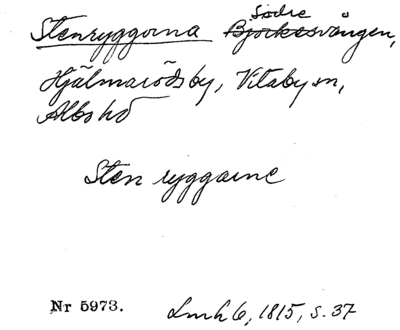 Södre
Stenryggorna Björkesvången,
Hjälmarödsby, Vitaby sn,
Albo hd
Sten ryggarne
Nr 5973.
Lmh 6, 1815, s. 37